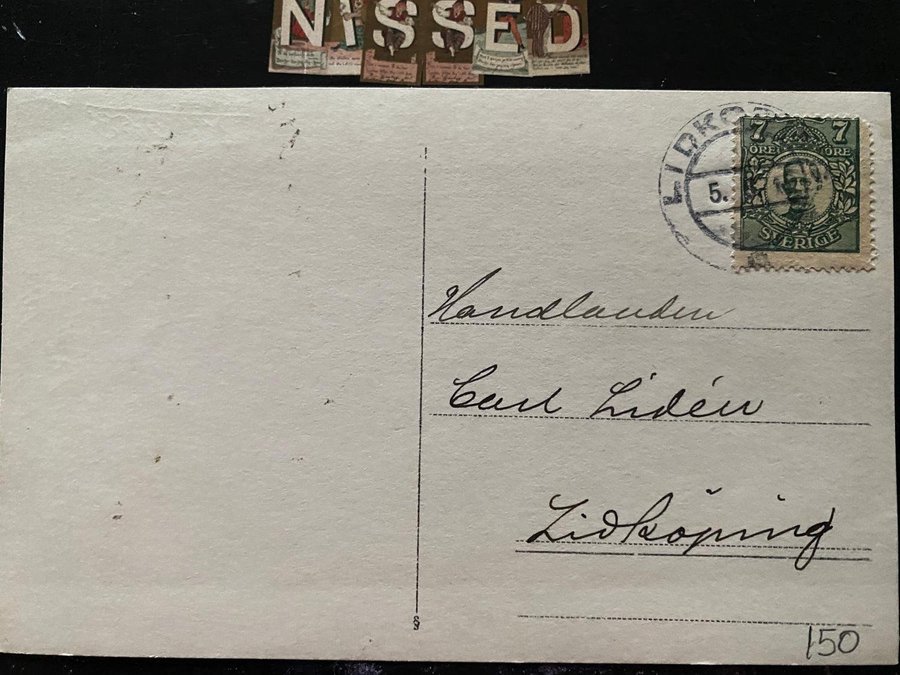 NISSED
LIDKÖ
7 7
ÖRE ÖRE
5.
SVERIGE
Handlanden
Carl Lidén
Lidköping
150